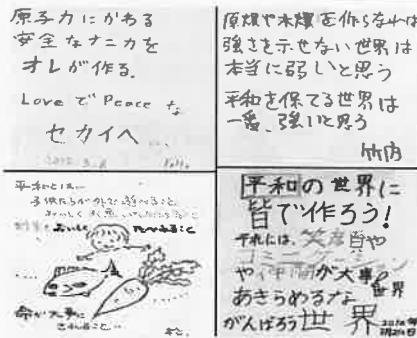 原子力にかわる
安全なナニカを
オレが作る.
Love で Peace な
セカイへ
原爆や水爆を作らなければ
強さを示せない世界は
本当に弱いと思う
平和を保てる世界は
一番、強いと思う
竹内
平和とは…
子供たちが外で遊べること
おいしく
たべること
命が大事に
されること…
平和の世界に
皆で作ろう!
それには、笑顔や
コミュニケーション
や仲間が大事。
あきらめるな 世界
がんばろう世界